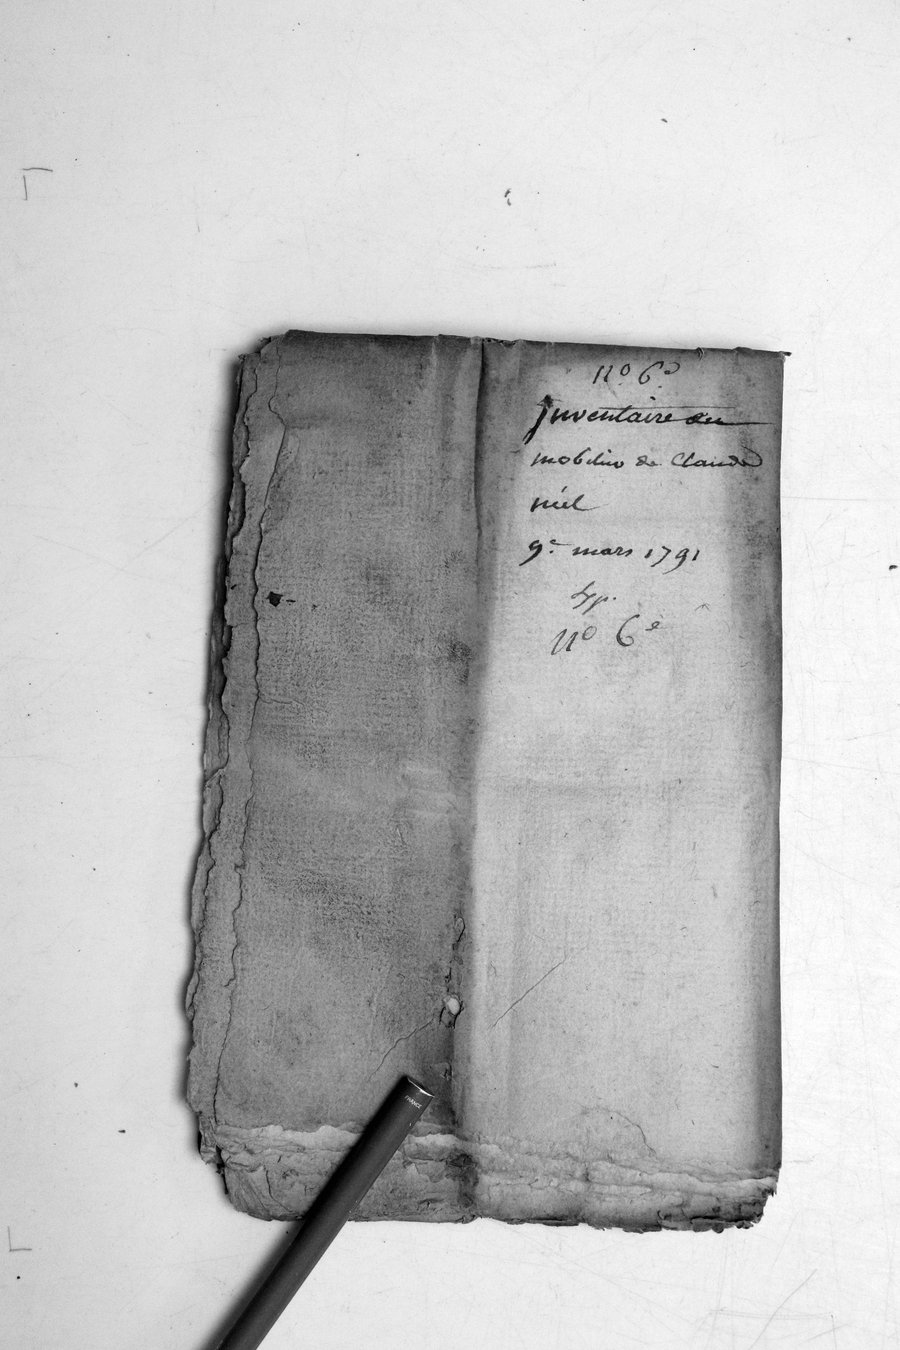 n.º 6.e
Inventaire du
mobilier de Claude
niel
9.e mars 1791
n.º 6e
FRANCE